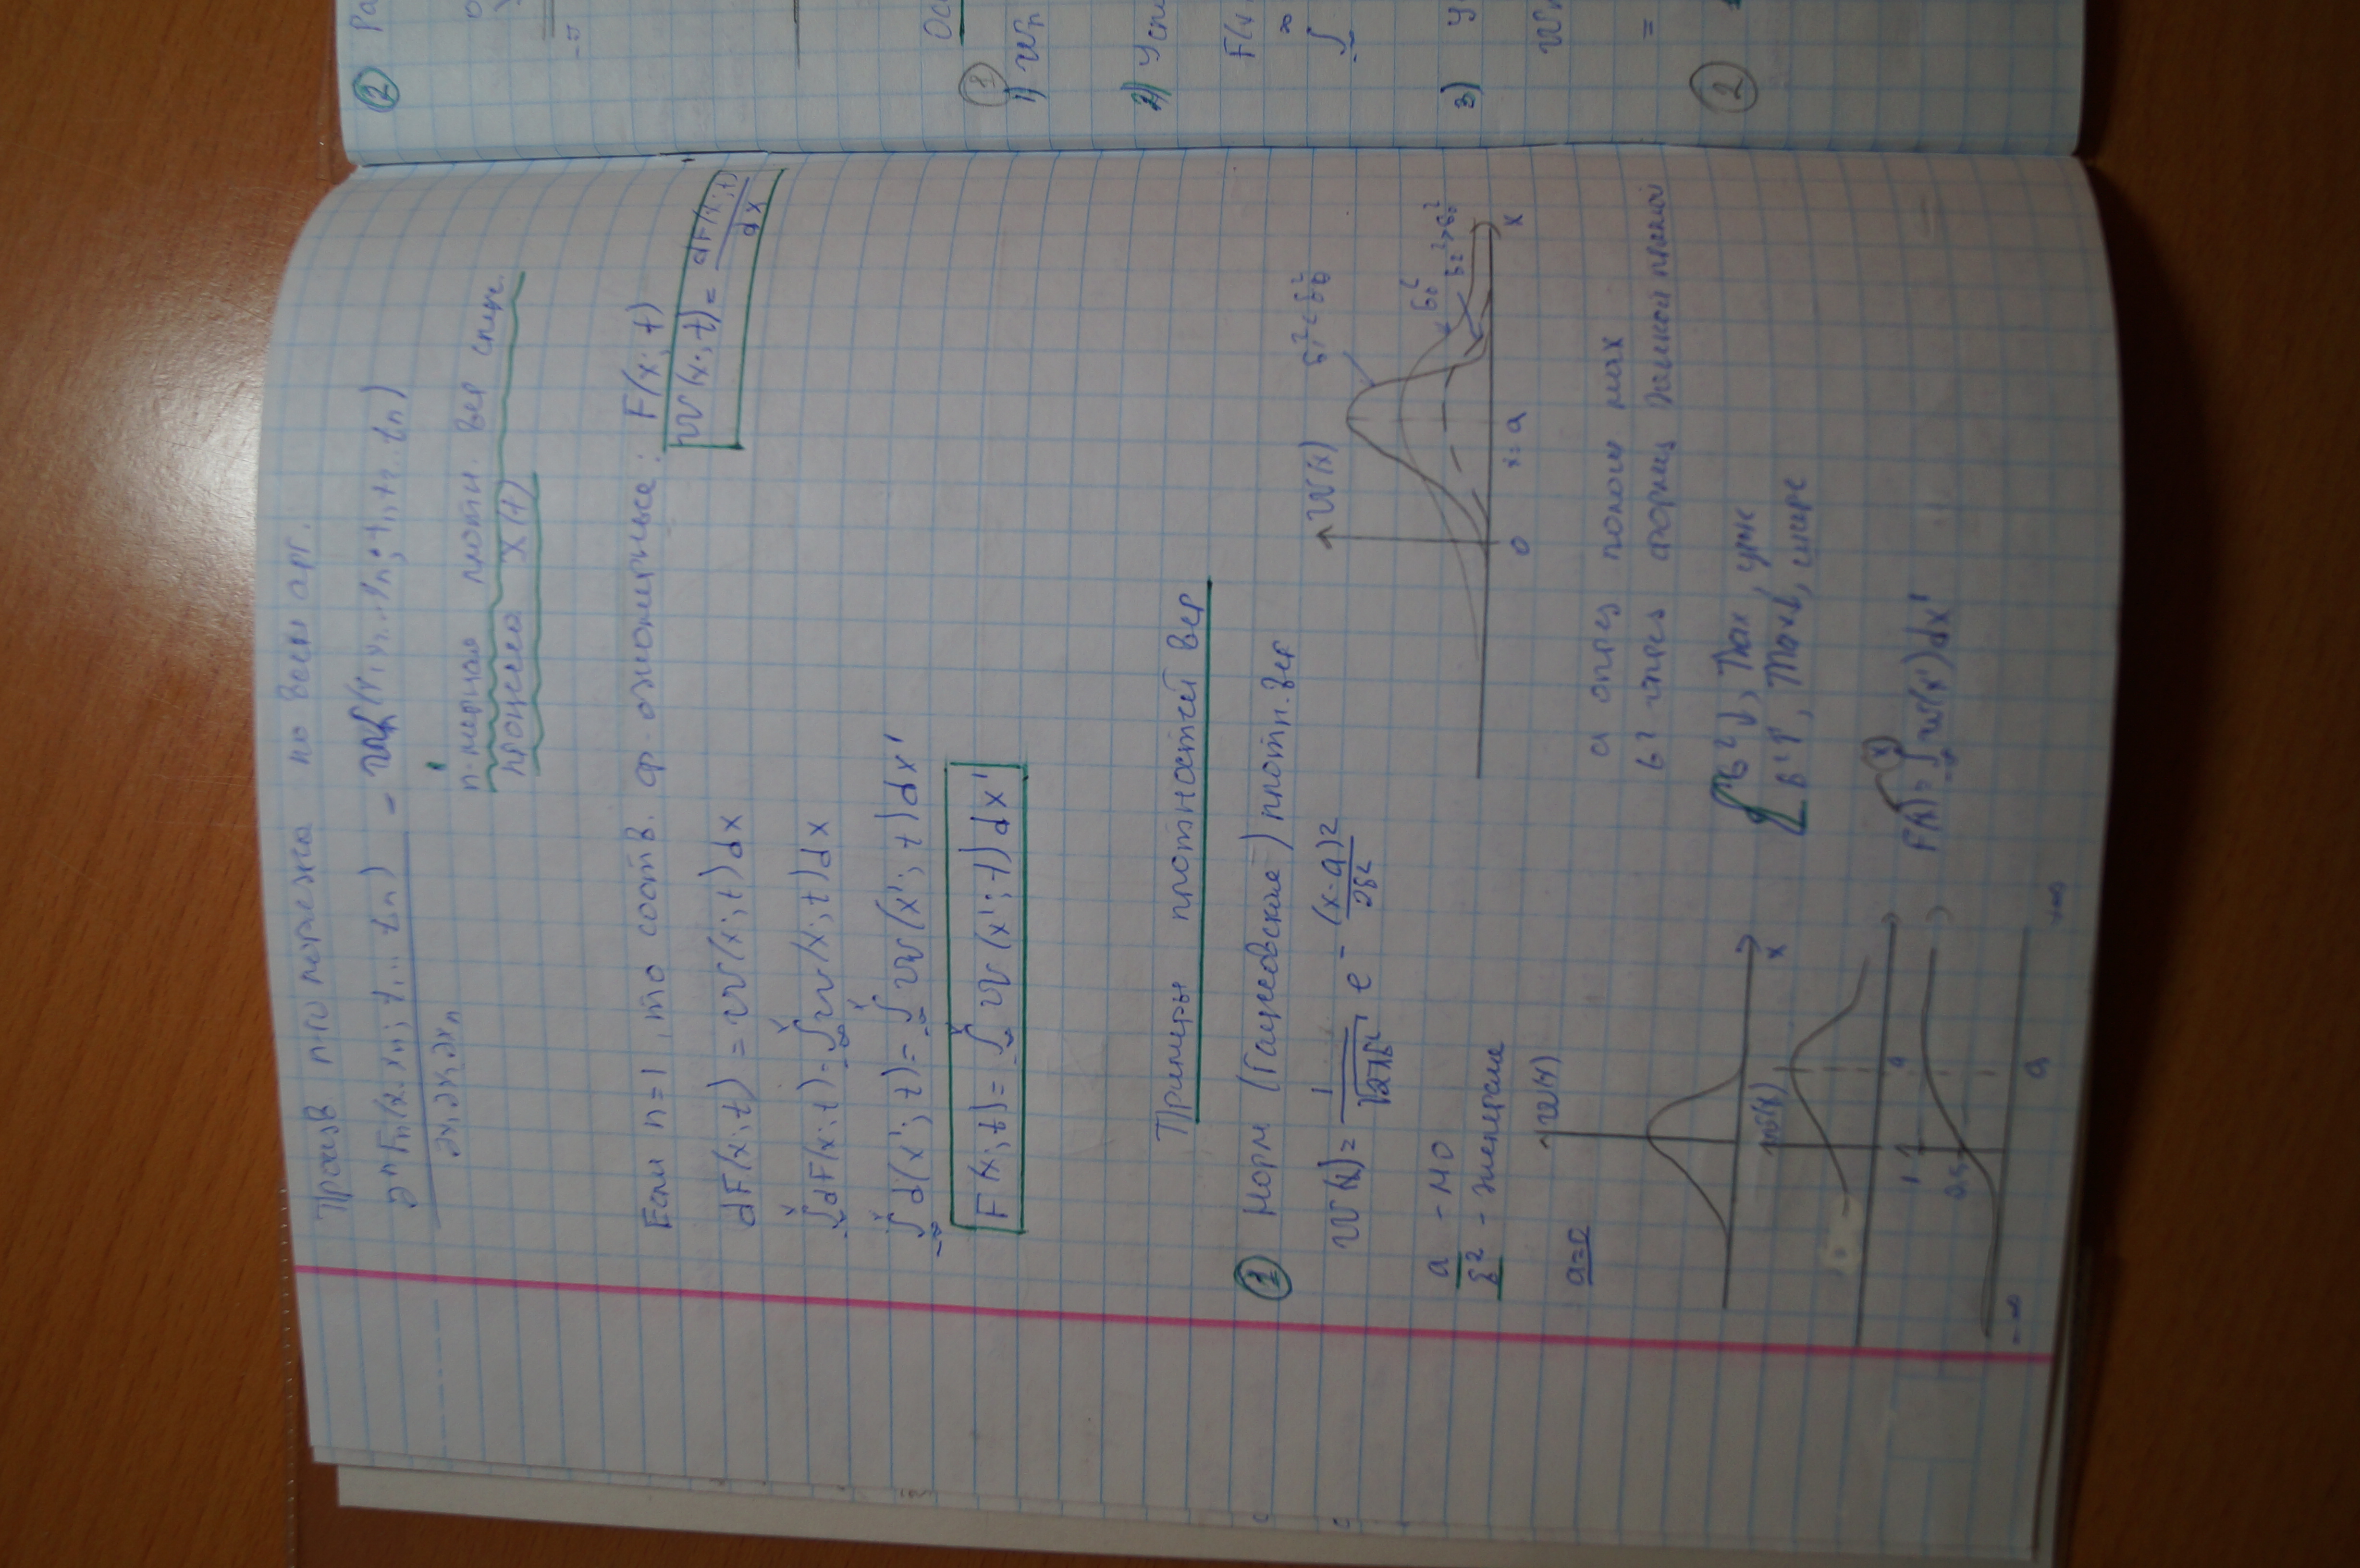 Произв n-го порядка по всем арг.
∂ⁿFn(x1...xn; t1... tn) / ∂x1∂x2∂xn = wn(x1 x2...xn; t1 t2...tn)
n-мерная плотн. вер случ.
процесса X(t)
Если n=1, то соотв. ф. одномерные: F(x; t)
w(x; t) = dF(x; t) / dx
dF(x; t) = w(x; t)dx
∫_{-∞}^{x} dF(x; t) = ∫_{-∞}^{x} w(x; t)dx
∫_{-∞}^{x} d(x'; t) = ∫_{-∞}^{x} w(x'; t)dx'
F(x; t) = ∫_{-∞}^{x} w(x'; t)dx'
Примеры плотностей вер
1 Норм (Гауссовская) плотн. вер
w(x) = 1/√(2πσ²) e^{-(x-a)²/2σ²}
w(x) σ1²<σ0²
σ0²
σ2²>σ0²
0 x=a x
a - МО
σ² - дисперсия
a=0
w(x)
x
a опред полож max
σ² опред форму данной прямой
σ²↓, max, уже
σ²↑, max↓, шире
w(x)
a
F(x) = ∫_{-∞}^{x} w(x')dx'
1
0,5
-∞ a +∞
2 Ра
Ос
1
1) wn
2) Усл
F(x
∞
∫
-∞
3) У
wn
=
2